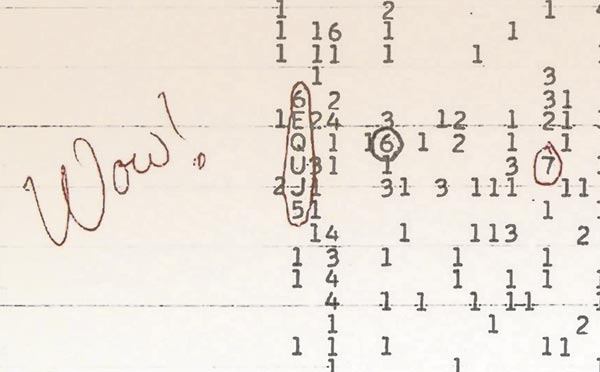 1 2 1
1 16 1 1
1 11 1 1
1 3
6 2 31
1 E 24 3 12 1 21
Q 1 1 6 1 2 1 1
U 31 1 3 7
2 J 1 31 3 111 11
5 1 1
14 1 113 2
1 3 1 1 1
1 4 1 1 1
4 1 1 1 11
1 1 2
1 1 1 11
1 1
Wow!